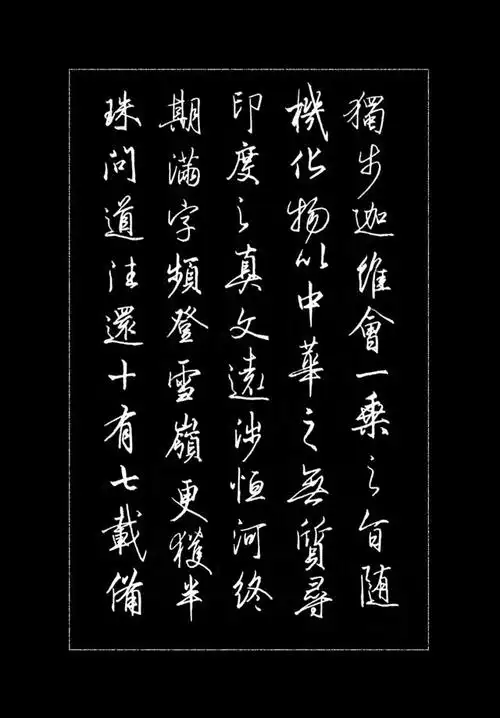 獨步迦維會一乘之旨随
機化物以中華之無質尋
印度之真文遠涉恒河終
期滿字頻登雪嶺更獲半
珠問道法還十有七載備